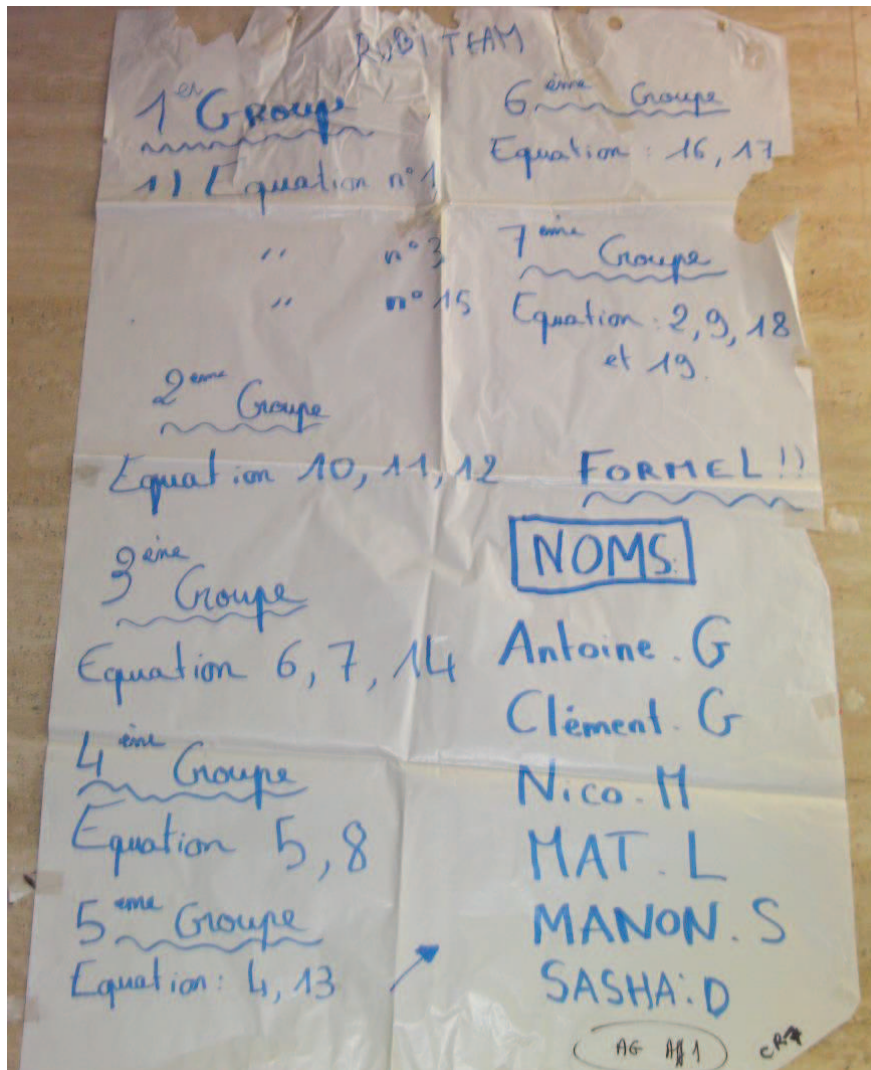 RUBI TEAM
1er Groupe
1) Equation n°1
" n°3
" n°15
2ème Groupe
Equation 10, 11, 12
3ème Groupe
Equation 6, 7, 14
4ème Groupe
Equation 5, 8
5ème Groupe
Equation : 4, 13
6ème Groupe
Equation : 16, 17
7ème Groupe
Equation : 2, 9, 18
et 19.
FORMEL !!
NOMS :
Antoine . G
Clément . G
Nico . M
MAT . L
MANON . S
SASHA : D
AG 1
CR7